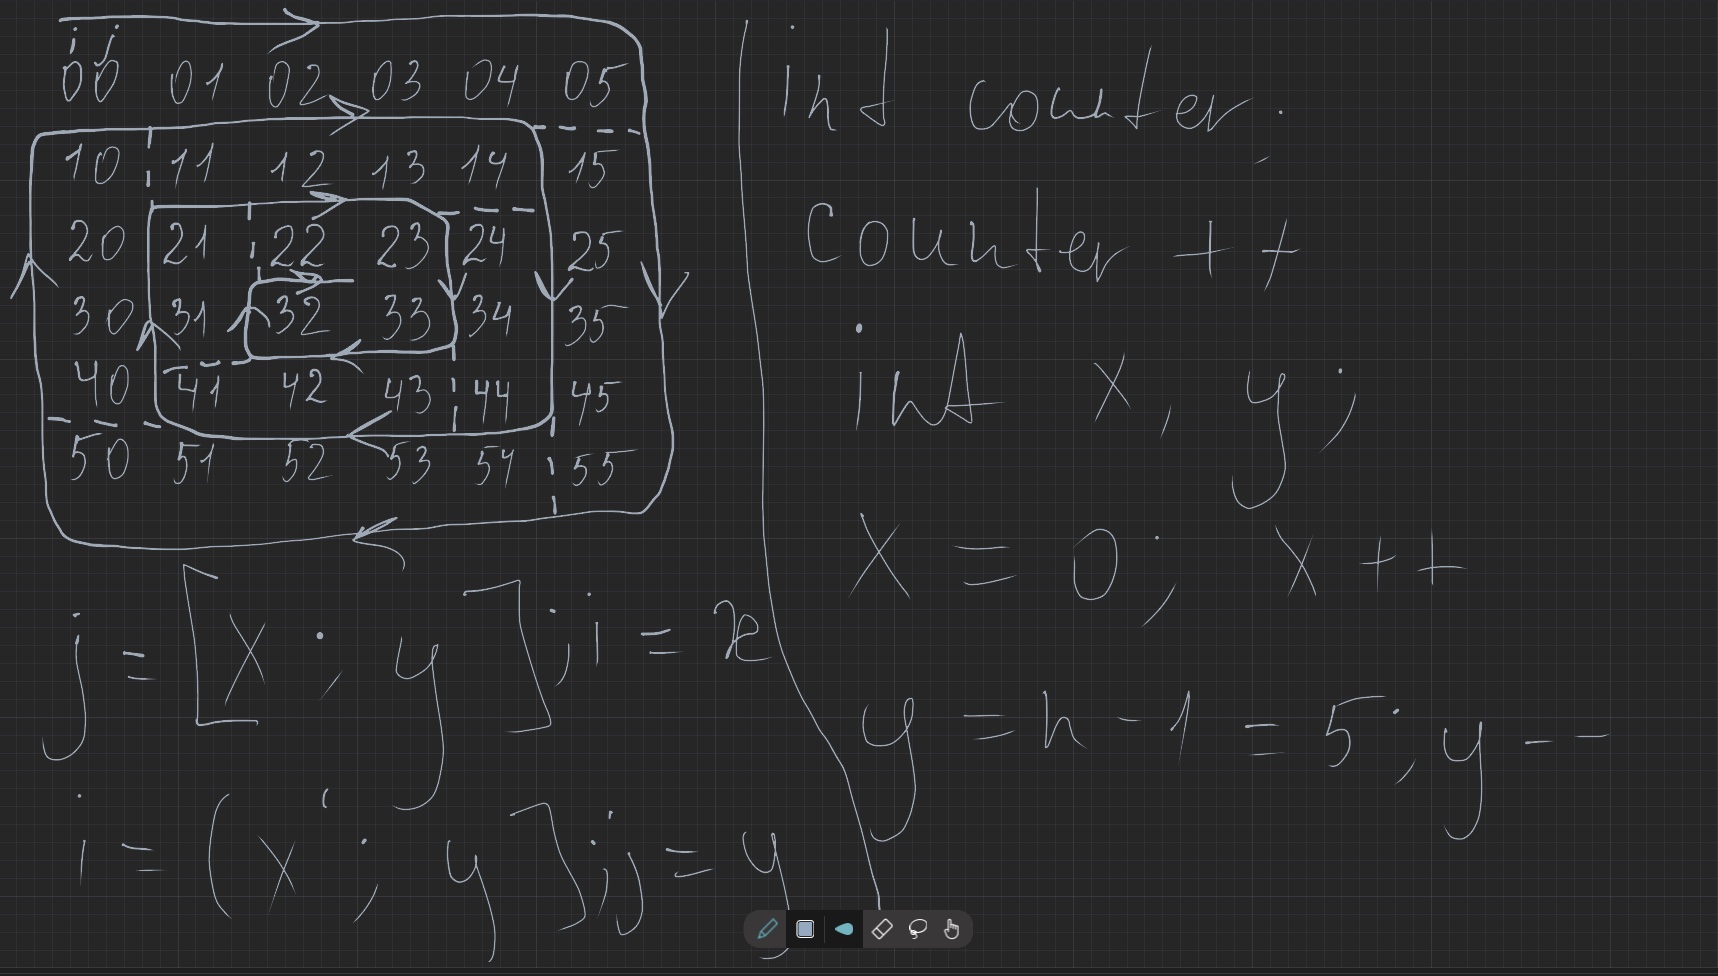 i j
00 01 02 03 04 05
10 11 12 13 14 15
20 21 22 23 24 25
30 31 32 33 34 35
40 41 42 43 44 45
50 51 52 53 54 55
j = [x ; y] ; i = x
i = (x ; y] ; j = y
int counter;
counter ++
int x, y;
x = 0; x ++
y = n - 1 = 5; y --